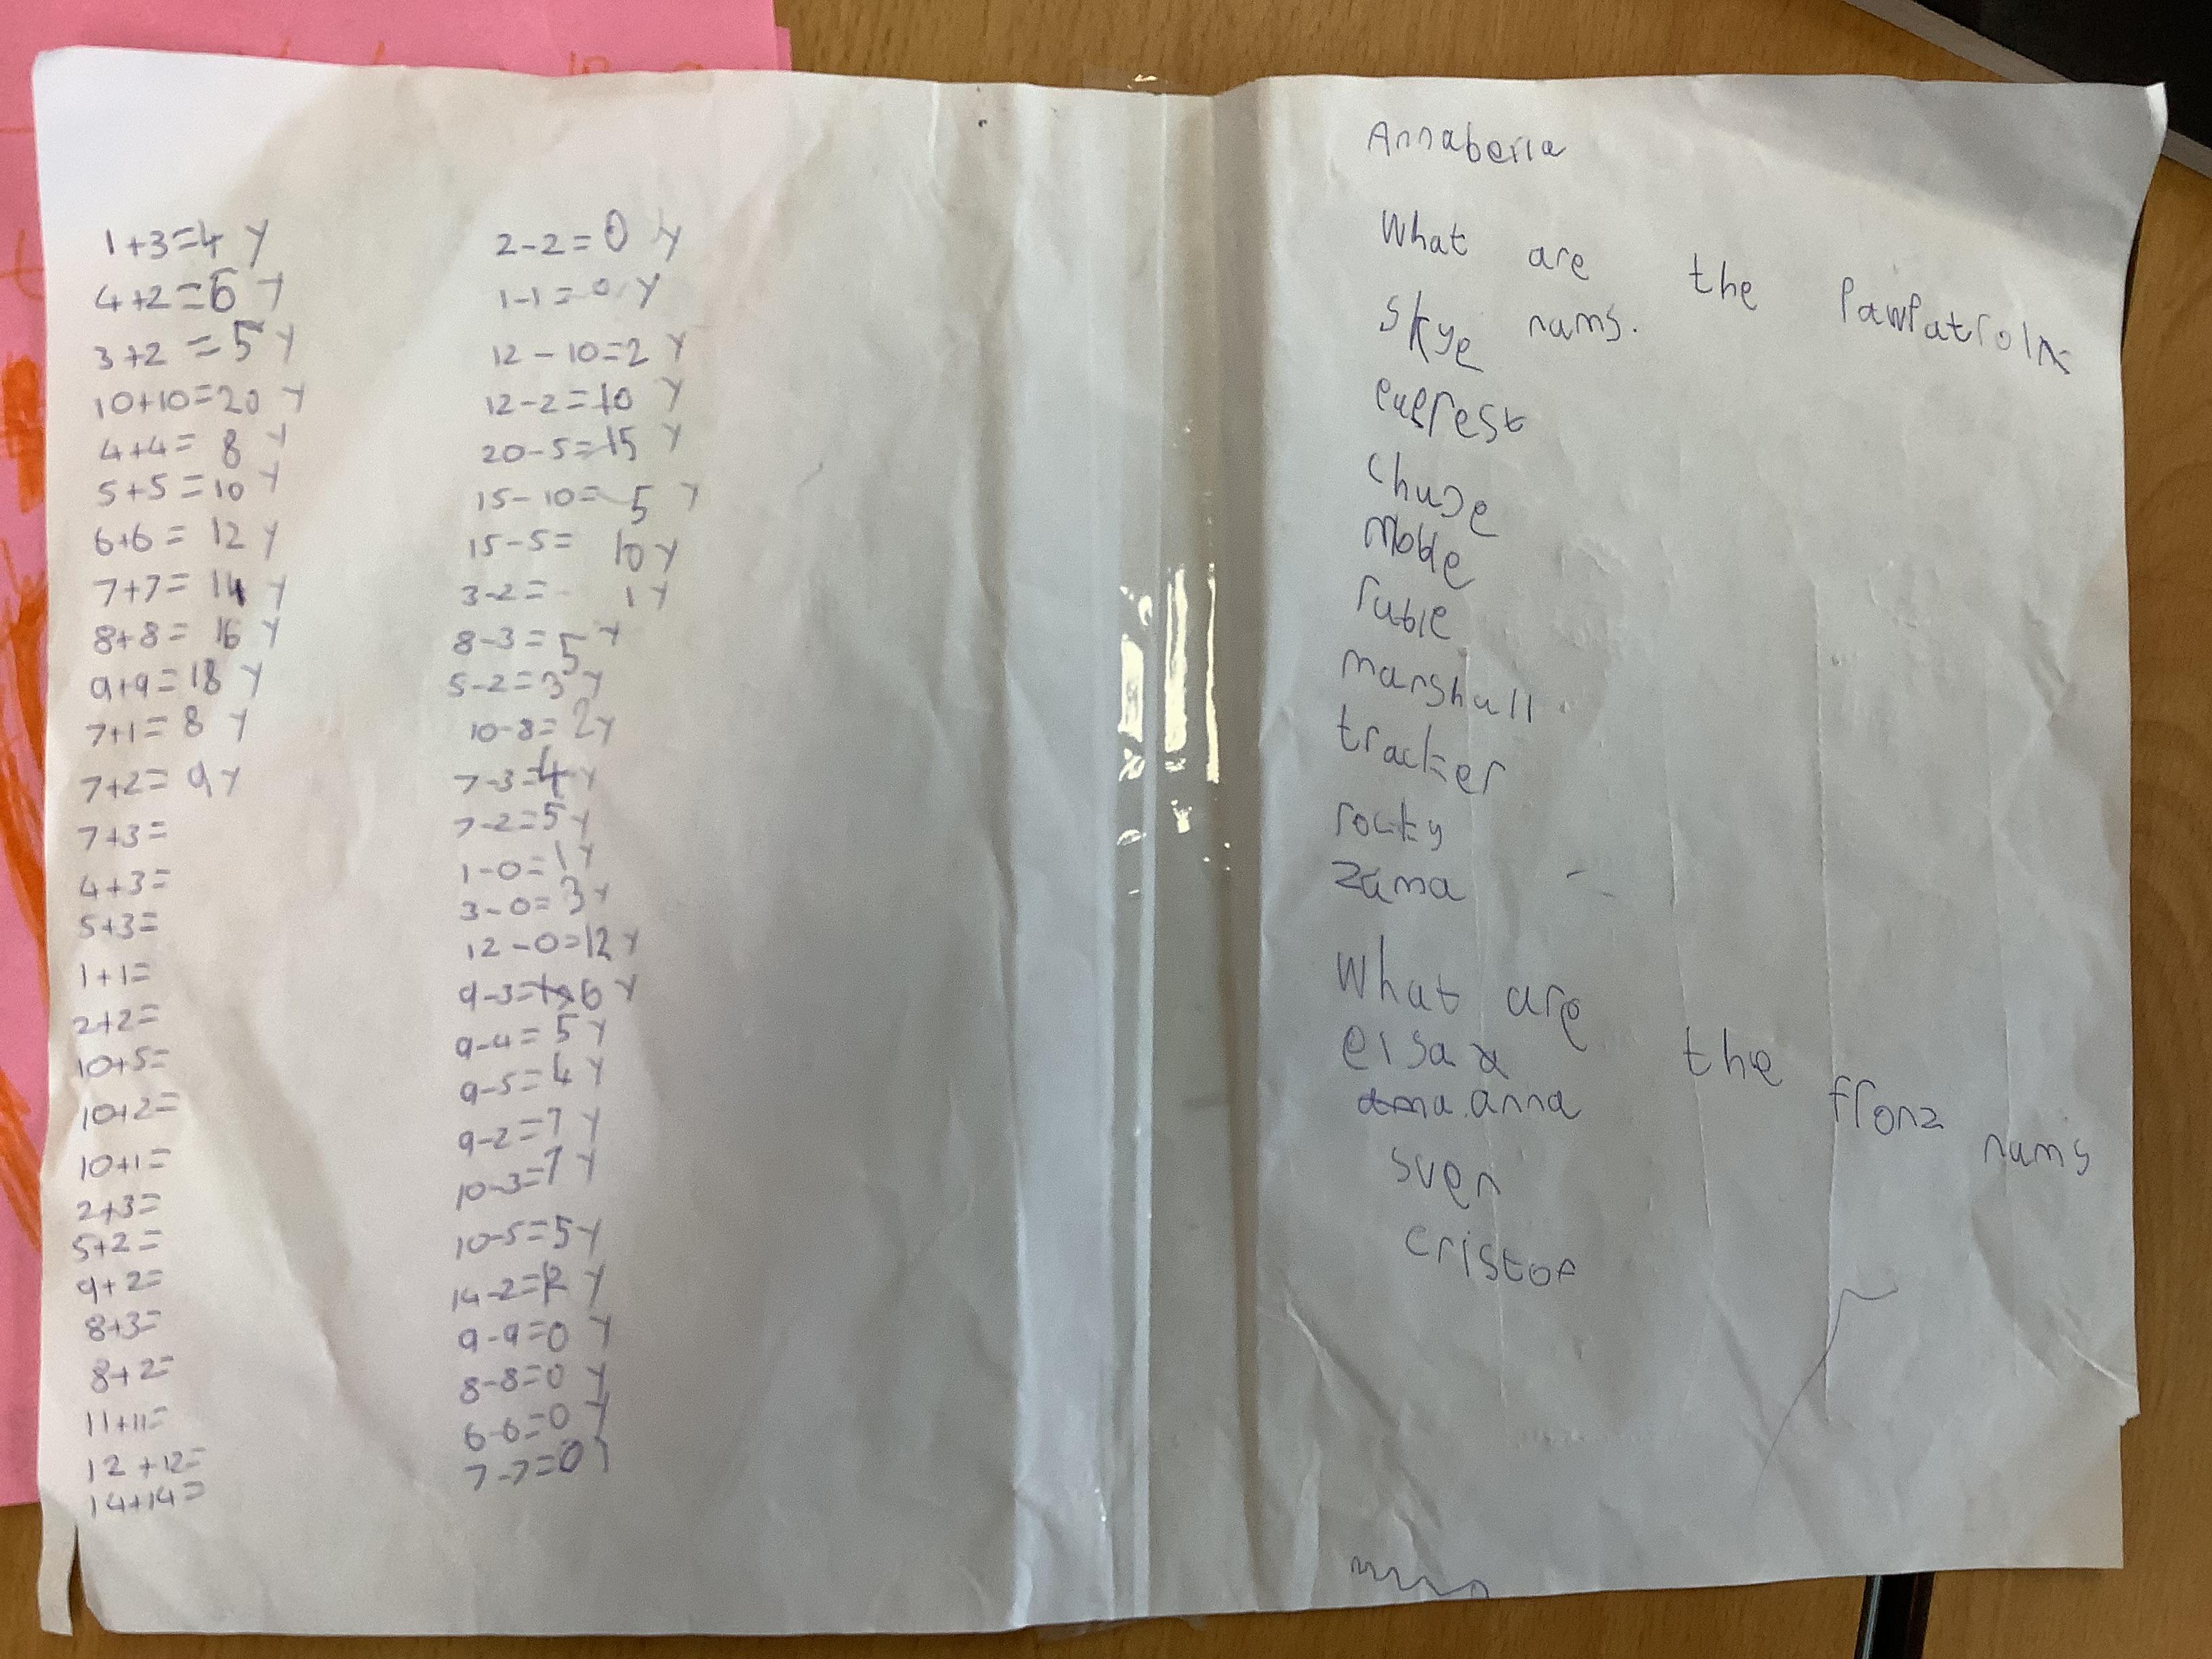 1+3=4 y
4+2=6 y
3+2=5 y
10+10=20 y
4+4=8 y
5+5=10 y
6+6=12 y
7+7=14 y
8+8=16 y
9+9=18 y
7+1=8 y
7+2=9 y
7+3=
4+3=
5+3=
1+1=
2+2=
10+5=
10+2=
10+1=
2+3=
5+2=
9+2=
8+3=
8+2=
11+11=
12+12=
14+14=
2-2=0 y
1-1=0 y
12-10=2 y
12-2=10 y
20-5=15 y
15-10=5 y
15-5=10 y
3-2=1 y
8-3=5 y
5-2=3 y
10-8=2 y
7-3=4 y
7-2=5 y
1-0=1 y
3-0=3 y
12-0=12 y
9-3=6 y
9-4=5 y
9-5=4 y
9-2=7 y
10-3=7 y
10-5=5 y
14-2=12 y
9-9=0 y
8-8=0 y
6-6=0 y
7-7=0 y
Annabella
What are the Pawpatrol
nams.
Skye
everest
chase
ruble
marshall
tracker
rocky
zuma
What are the fronz nams
elsa
anna
sven
cristof